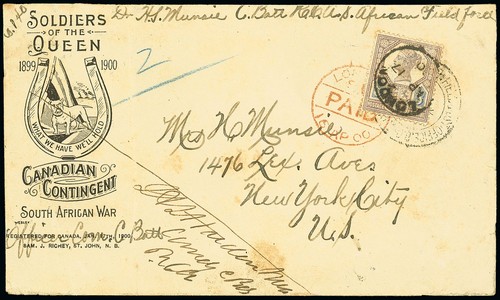 SOLDIERS
OF THE
QUEEN
1899 1900
WHAT WE HAVE WE'LL HOLD
CANADIAN
CONTINGENT
SOUTH AFRICAN WAR
REGISTERED FOR CANADA, JAN. 17TH, 1900
SAM. J. RICHEY, ST. JOHN, N. B.
Dr H.S. Munsie C. Batt R.C.A. S. African Field Force
2
PAID
LONDON
Mrs H. Munsie
1476 Lex. Aves
New York City
U.S.
Officer Com. C Batt